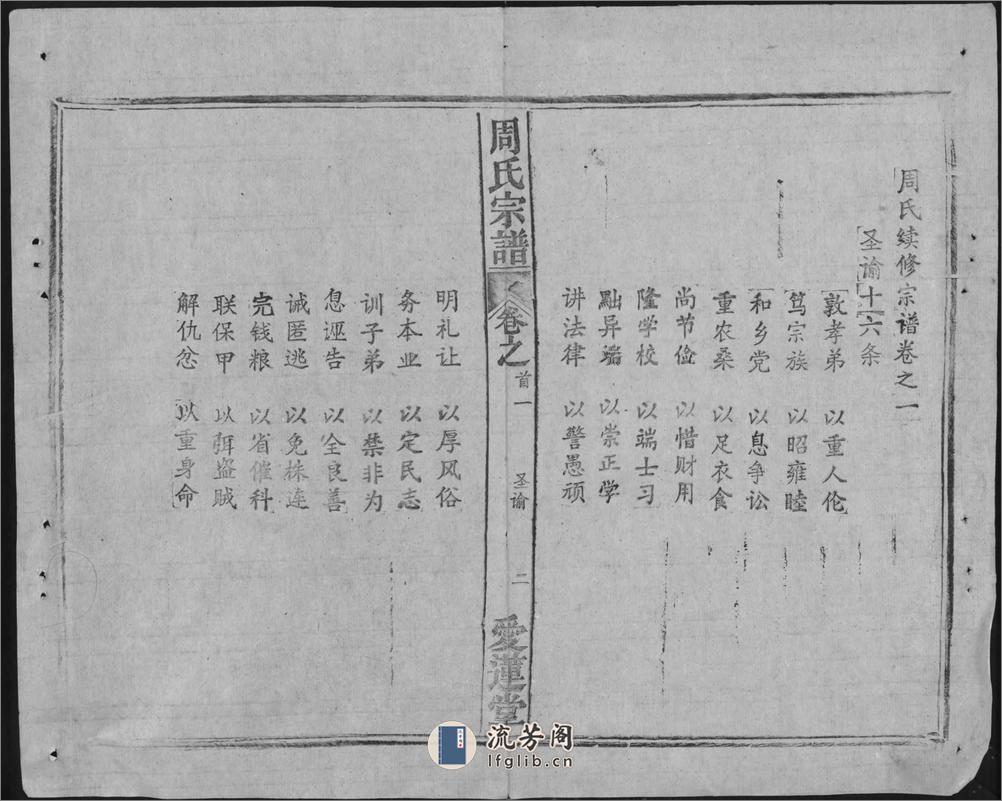 周氏续修宗谱卷之一
圣谕十六条
敦孝弟 以重人伦
笃宗族 以昭雍睦
和乡党 以息争讼
重农桑 以足衣食
尚节俭 以惜财用
隆学校 以端士习
黜异端 以崇正学
讲法律 以警愚顽
周氏宗譜 卷之首一 圣谕 二 愛蓮堂
明礼让 以厚风俗
务本业 以定民志
训子弟 以禁非为
息诬告 以全良善
诚匿逃 以免株连
完钱粮 以省催科
联保甲 以弭盗贼
解仇忿 以重身命
流芳阁
lfglib.cn